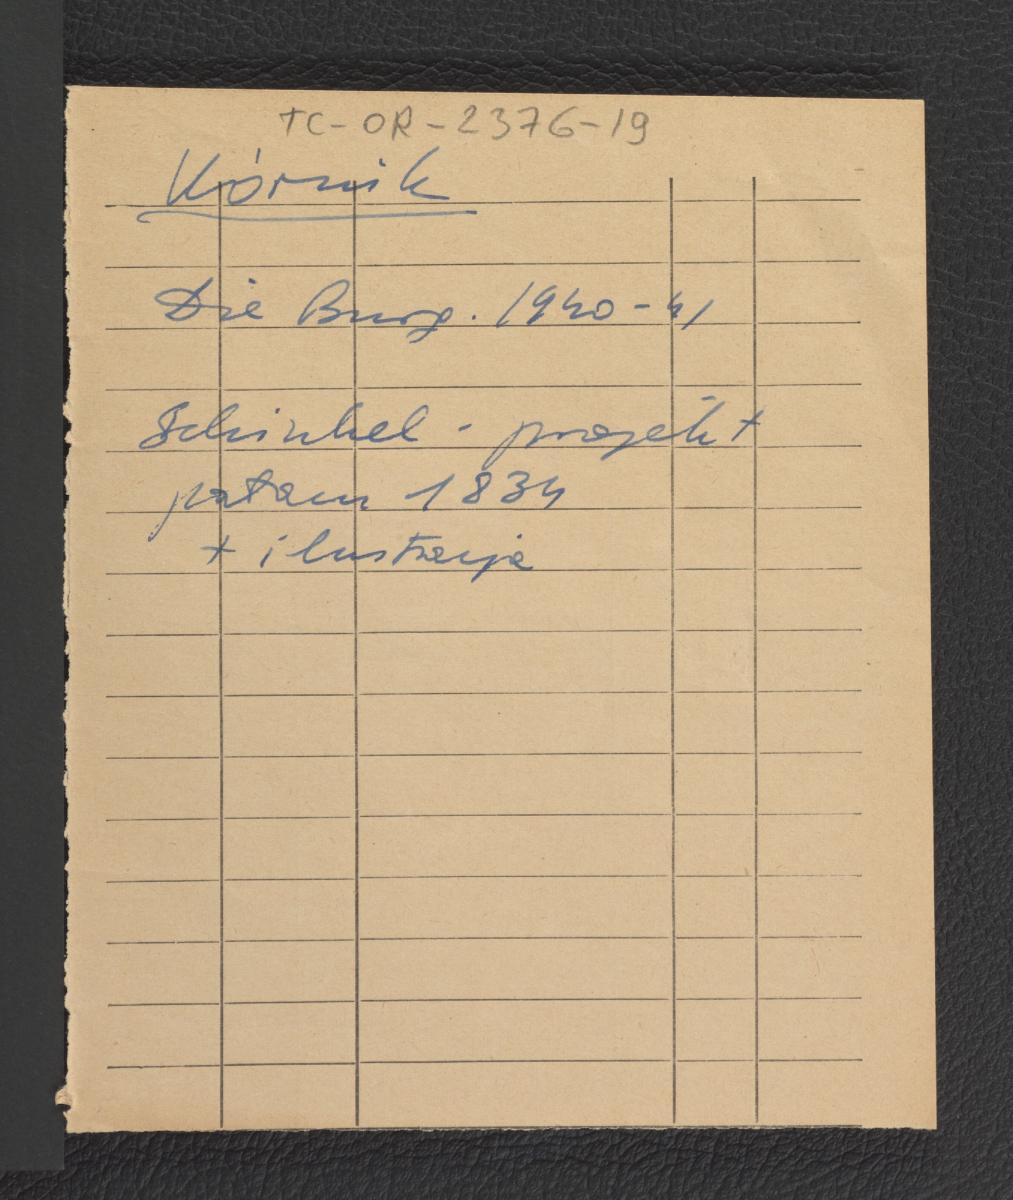 TC-OR-2376-19
Kórnik
Die Burg. 1940-41
Schinkel - projekt
1834
+ ilustracja